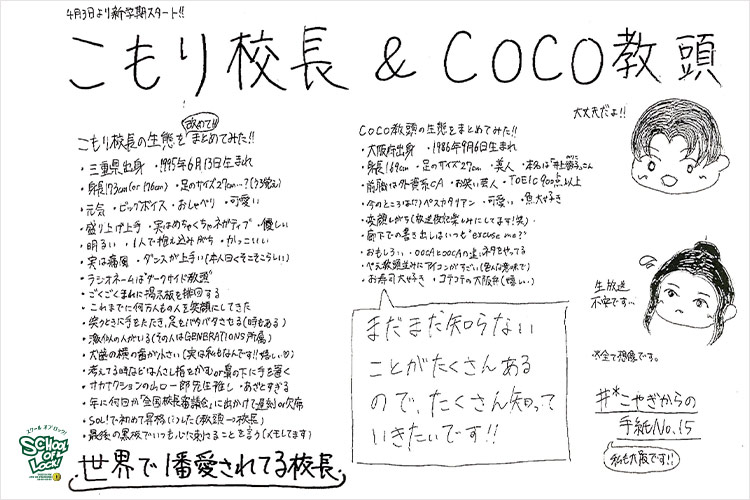 4月3日より新学期スタート!!
こもり校長 & COCO教頭
こもり校長の生態を改めて!!まとめてみた!!
・三重県出身 ・1995年6月13日生まれ
・身長173cm(or 176cm) ・足のサイズ27cm…?(うろ覚え)
・元気 ・ビッグボイス ・おしゃべり ・可愛い
・盛り上げ上手 ・実はめちゃくちゃネガティブ ・優しい
・明るい ・1人で抱え込みがち ・かっこいい
・実は痛風 ・ダンスが上手い(本人曰くそこそこらしい)
・ラジオネームは"ダークサイド教頭"
・ごくごくまれに掲示板を徘徊する
・これまでに何万人もの人を笑顔にしてきた
・笑うときに手をたたき、足もバタバタさせる(時もある)
・激似の人がいる(その人はGENERATIONS所属)
・犬歯の横の歯が小さい(実は私もなんです!!嬉しい♡)
・考えてる時などは人さし指をかむor鼻の下に手を置く
・サカナクションの山口一郎先生推し ・あざとすぎる
・年に何回か"全国校長審議会"に出かけて遅刻or欠席
・SOL!で初めて昇格(?)した(教頭→校長)
・最後の黒板でいつも心に刺さることを言う(メモしてます)
・世界で1番愛されてる校長
COCO教頭の生態をまとめてみた!!
・大阪府出身 ・1986年9月6日生まれ
・身長169cm ・足のサイズ27cm ・美人 ・本名は「井上
・前職は外資系CA ・お笑い芸人 ・TOEIC 900点以上
・今のところは(?)ペスカタリアン ・可愛い ・魚大好き
・変顔しがち(放送後記楽しみにしてます!笑)
・廊下での書き出しはいつも"excuse me?"
・おもしろい
・ぺえ教頭並みにアイコンがすごい(色んな意味で)
・お寿司大好き ・コテコテの大阪弁(嬉しい)
まだまだ知らない
ことがたくさんある
ので、たくさん知って
いきたいです!!
大丈夫だよ!!
生放送
不安です…
※全て想像です。
#*こやぎからの
手紙No.15
私も大阪です!!
スクール オブ ロック!
SCHOOL
OF
LOCK!